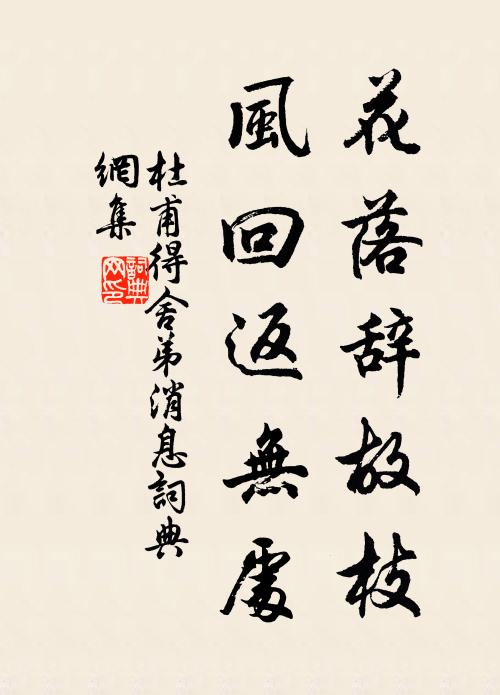 花落辞故枝
風回返無處
杜甫得舍弟消息詞典
網集
詞典
网印